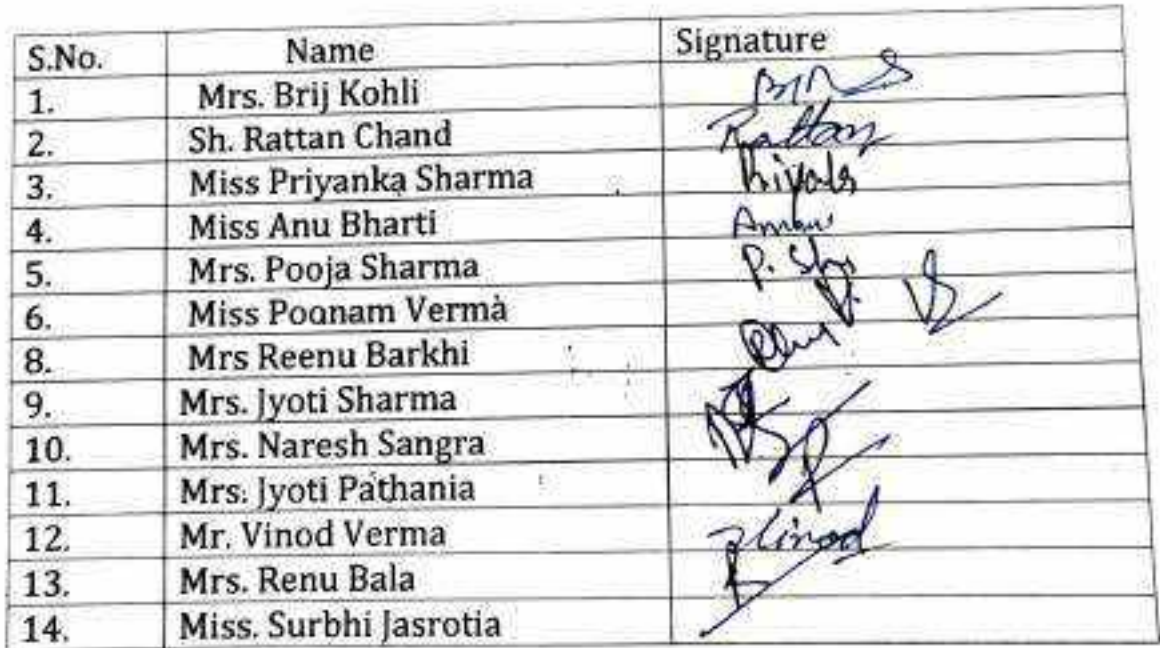 S.No. Name Signature
1. Mrs. Brij Kohli
2. Sh. Rattan Chand Rattan
3. Miss Priyanka Sharma
4. Miss Anu Bharti
5. Mrs. Pooja Sharma P. Sh
6. Miss Poonam Verma
8. Mrs Reenu Barkhi
9. Mrs. Jyoti Sharma
10. Mrs. Naresh Sangra
11. Mrs. Jyoti Pathania
12. Mr. Vinod Verma Vinod
13. Mrs. Renu Bala
14. Miss. Surbhi Jasrotia